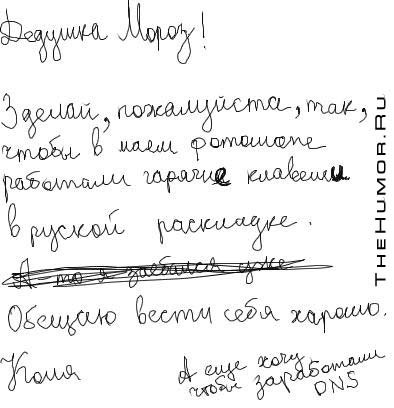 Дедушка Мороз!
Зделай, пожалуйста, так,
чтобы в маем фотошопе
работали гарячие клавеши
в руской раскладке.
А то я заебался уже
Обещаю вести себя харошо.
Коля
А еще хочу
чтобы заработали
DNS
THEHUMOR.RU